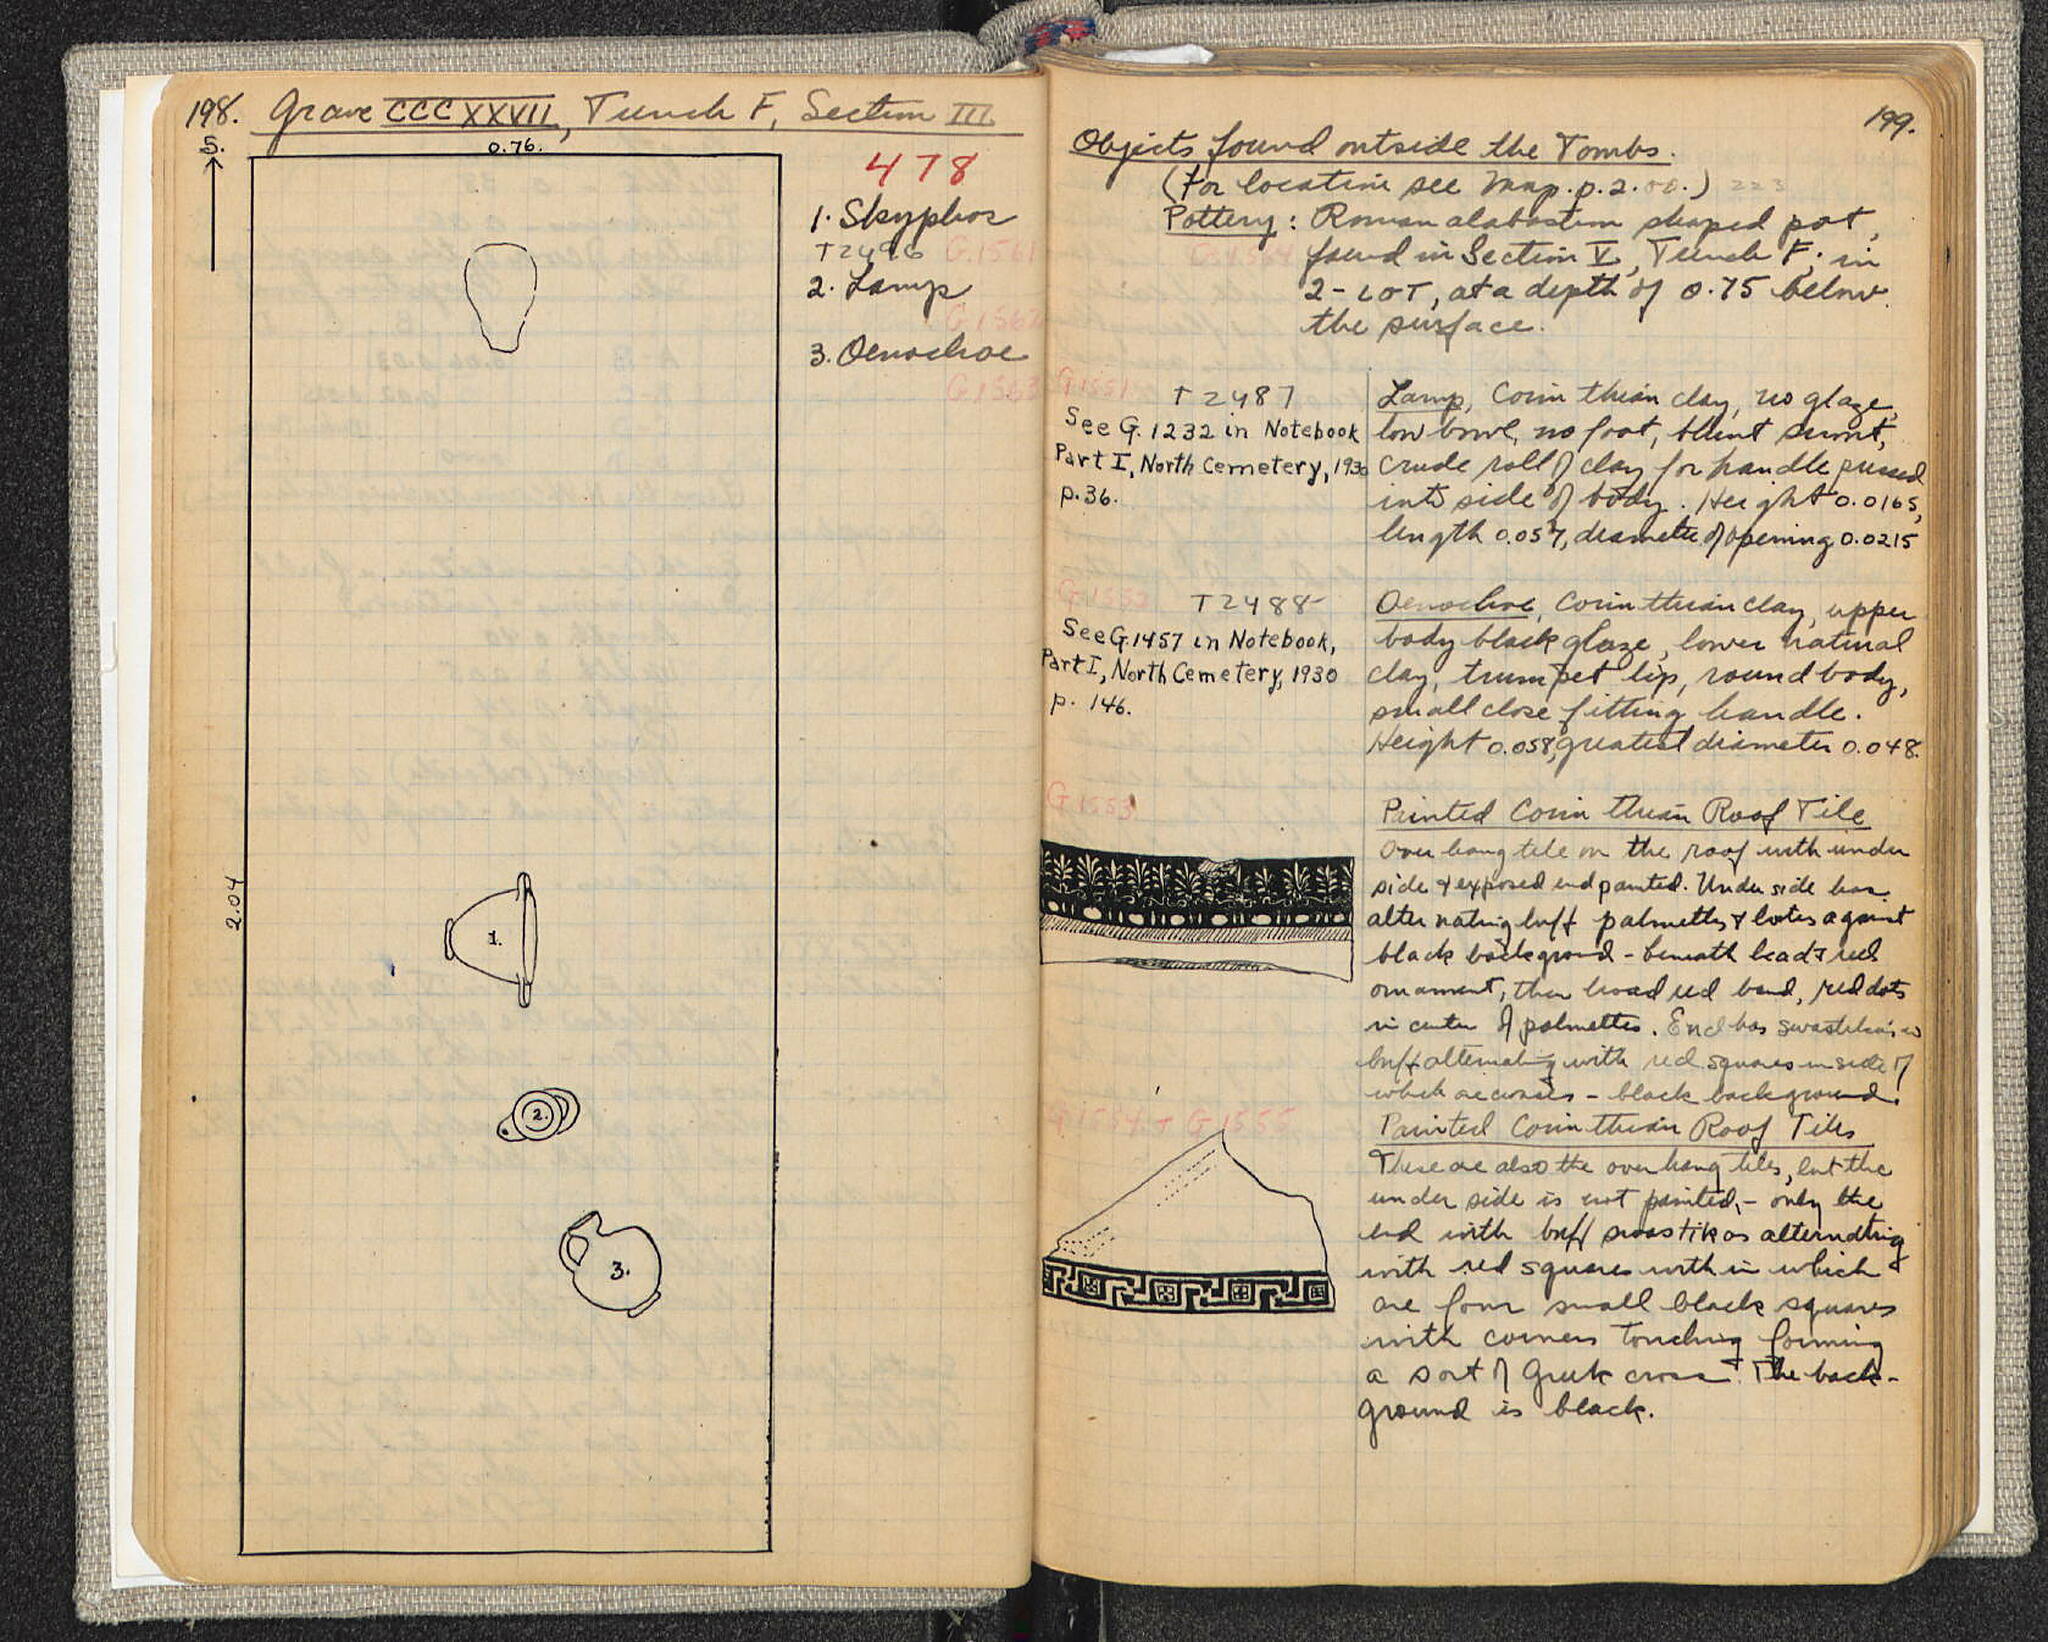 198. Grave CCCXXVII, Trench F, Section III
S.
0.76.
478
1. Skyphos
T2496 G.1561
2. Lamp
G.1562
3. Oenochoe
G.1563
2.04
1.
2.
3.
199.
Objects found outside the Tombs.
(For location see Map. p. 2.00.) 223
Pottery: Roman alabastron shaped pot,
G.1564 found in Section V, Trench F, in
2-LOT, at a depth of 0.75 below
the surface.
G1551
T2487
See G.1232 in Notebook
Part I, North Cemetery, 1930
p.36.
Lamp, Corinthian clay, no glaze,
low bowl, no foot, blunt snout,
crude roll of clay for handle pressed
into side of body. Height 0.0165,
length 0.057, diameter of opening 0.0215
G1552
T2488
See G.1457 in Notebook,
Part I, North Cemetery, 1930
p. 146.
Oenochoe, Corinthian clay, upper
body black glaze, lower natural
clay, trumpet lip, round body,
small close fitting handle.
Height 0.058, greatest diameter 0.048.
G1553
Painted Corinthian Roof Tile
Over hang tile on the roof with under
side & exposed end painted. Under side has
alternating buff palmettes & lotus against
black background - beneath bead & reel
ornament, then broad red band, red dots
in center of palmettes. End has swastikas in
buff alternating with red squares inside of
which are crosses - black background.
G1554 + G1555
Painted Corinthian Roof Tiles
These are also the over hang tiles, but the
under side is not painted, - only the
end with buff swastikas alternating
with red squares with in which
are four small black squares
with corners touching forming
a sort of Greek cross. The back-
ground is black.